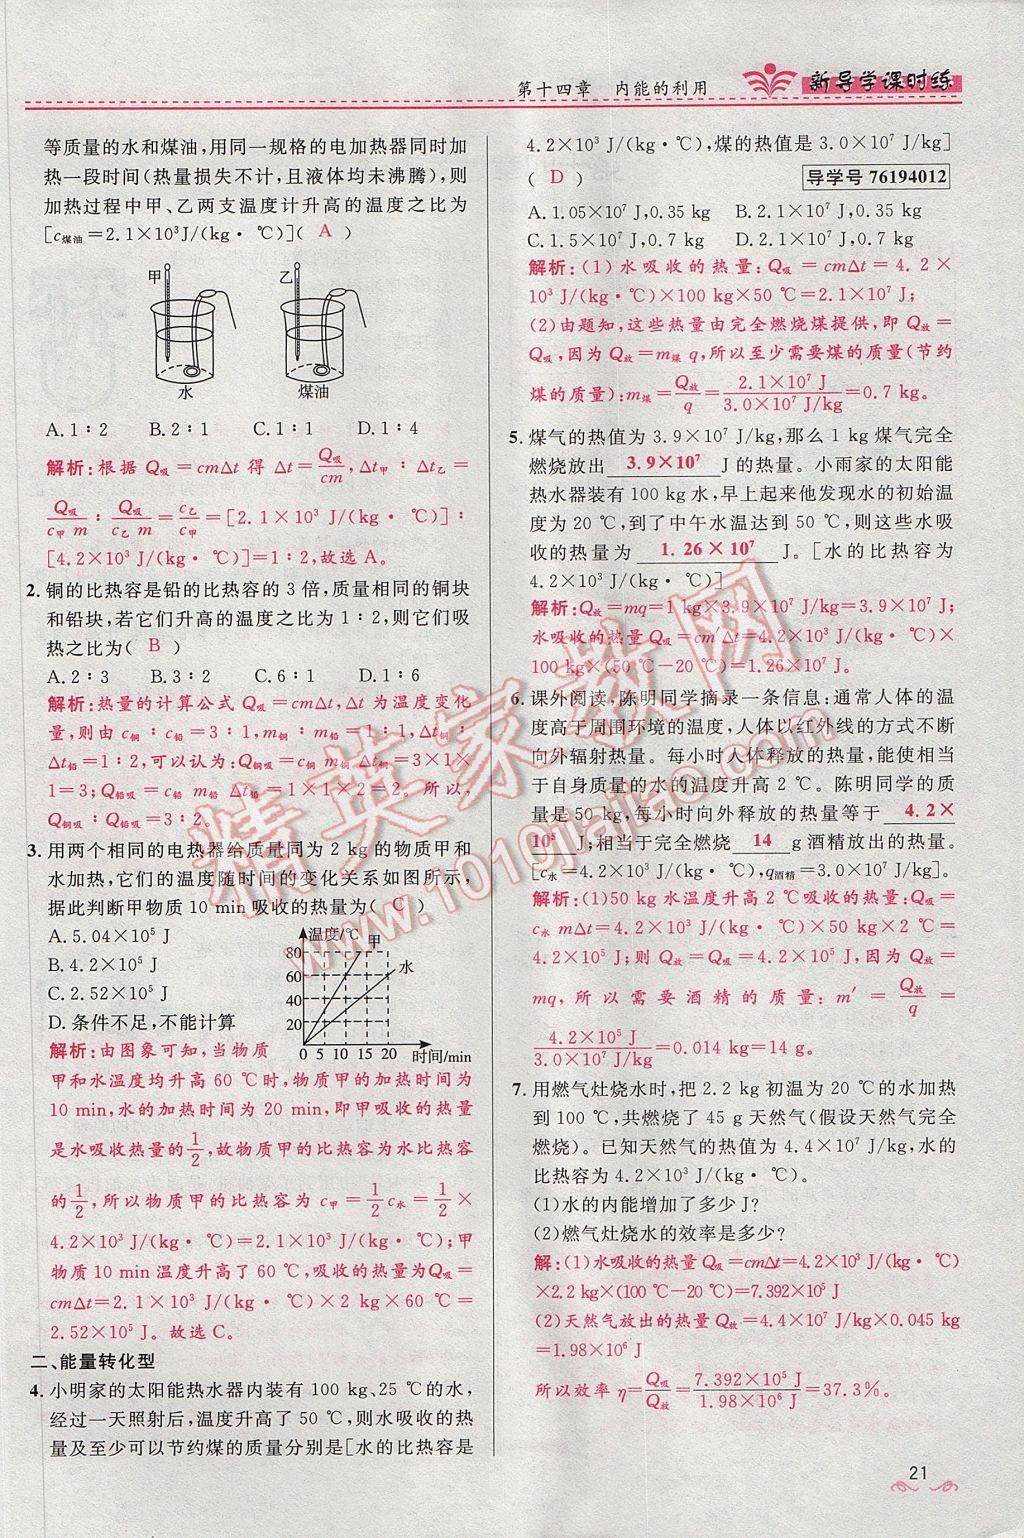 第十四章 内能的利用
新导学课时练
等质量的水和煤油,用同一规格的电加热器同时加
热一段时间(热量损失不计,且液体均未沸腾),则
加热过程中甲、乙两支温度计升高的温度之比为
[c煤油=2.1×10³J/(kg·℃)]( A )
甲 乙
水 煤油
A.1∶2 B.2∶1 C.1∶1 D.1∶4
解析:根据 Q吸=cmΔt 得 Δt=Q吸/cm,Δt甲∶Δt乙=
Q吸/c甲m∶Q吸/c乙m=c乙/c甲=[2.1×10³ J/(kg·℃)]∶
[4.2×10³ J/(kg·℃)]=1∶2,故选 A。
2. 铜的比热容是铅的比热容的 3 倍,质量相同的铜块
和铅块,若它们升高的温度之比为 1∶2,则它们吸
热之比为( B )
A.2∶3 B.3∶2 C.6∶1 D.1∶6
解析:热量的计算公式 Q吸=cmΔt,Δt 为温度变化
量,则由 c铜∶c铅=3∶1,m铜∶m铅=1∶1,Δt铜∶
Δt铅=1∶2,可以认为:Q铜吸=c铜 m铜 Δt铜=3×1×
1=3;Q铅吸=c铅 m铅 Δt铅=1×1×2=2。所以,
Q铜吸∶Q铅吸=3∶2。
3. 用两个相同的电热器给质量同为 2 kg 的物质甲和
水加热,它们的温度随时间的变化关系如图所示,
据此判断甲物质 10 min 吸收的热量为( C )
A. 5.04×10⁵ J
B. 4.2×10⁵ J
C. 2.52×10⁵ J
D. 条件不足,不能计算
温度/℃ 甲
80
水
60
40
20
0 5 10 15 20 时间/min
解析:由图象可知,当物质
甲和水温度均升高 60 ℃时,物质甲的加热时间为
10 min,水的加热时间为 20 min,即甲吸收的热量
是水吸收热量的1/2,故物质甲的比热容为水比热容
的1/2,所以物质甲的比热容 c甲=1/2c水=1/2×
4.2×10³ J/(kg·℃)=2.1×10³ J/(kg·℃);甲
物质 10 min 温度升高了 60 ℃,吸收的热量为Q吸=
cmΔt=2.1×10³ J/(kg·℃)×2 kg×60 ℃=
2.52×10⁵ J。故选 C。
二、能量转化型
4. 小明家的太阳能热水器内装有 100 kg、25 ℃的水,
经过一天照射后,温度升高了 50 ℃,则水吸收的热
量及至少可以节约煤的质量分别是[水的比热容是
4.2×10³ J/(kg·℃),煤的热值是 3.0×10⁷ J/kg]
( D ) 导学号 76194012
A. 1.05×10⁷ J,0.35 kg B. 2.1×10⁷ J,0.35 kg
C. 1.5×10⁷ J,0.7 kg D. 2.1×10⁷ J,0.7 kg
解析:(1)水吸收的热量:Q吸=cmΔt=4.2×
10³ J/(kg·℃)×100 kg×50 ℃=2.1×10⁷ J;
(2)由题知,这些热量由完全燃烧煤提供,即 Q放=
Q吸,因为 Q放=m煤 q,所以至少需要煤的质量(节约
煤的质量):m煤=Q放/q=2.1×10⁷ J/3.0×10⁷ J/kg=0.7 kg。
5. 煤气的热值为 3.9×10⁷ J/kg,那么 1 kg 煤气完全
燃烧放出 3.9×10⁷ J的热量。小雨家的太阳能
热水器装有 100 kg 水,早上起来他发现水的初始温
度为 20 ℃,到了中午水温达到 50 ℃,则这些水吸
收的热量为 1.26×10⁷ J。[水的比热容为
4.2×10³ J/(kg·℃)]
解析:Q放=mq=1 kg×3.9×10⁷ J/kg=3.9×10⁷ J;
水吸收的热量 Q吸=cm′Δt=4.2×10³ J/(kg·℃)×
100 kg×(50 ℃-20 ℃)=1.26×10⁷ J。
6. 课外阅读,陈明同学摘录一条信息:通常人体的温
度高于周围环境的温度,人体以红外线的方式不断
向外辐射热量。每小时人体释放的热量,能使相当
于自身质量的水的温度升高 2 ℃。陈明同学的质
量是 50 kg,每小时向外释放的热量等于 4.2×
10⁵ J;相当于完全燃烧 14 g 酒精放出的热量。
[c水=4.2×10³ J/(kg·℃),q酒精=3.0×10⁷ J/kg]。
解析:(1)50 kg 水温度升高 2 ℃吸收的热量:Q吸=
c水 mΔt=4.2×10³ J/(kg·℃)×50 kg×2 ℃=
4.2×10⁵ J;则 Q放=Q吸=4.2×10⁵ J,因为 Q放=
mq,所以需要酒精的质量:m′=Q放/q=
4.2×10⁵ J/3.0×10⁷ J/kg=0.014 kg=14 g。
7. 用燃气灶烧水时,把 2.2 kg 初温为 20 ℃的水加热
到 100 ℃,共燃烧了 45 g 天然气(假设天然气完全
燃烧)。已知天然气的热值为 4.4×10⁷ J/kg,水的
比热容为 4.2×10³ J/(kg·℃)。
(1)水的内能增加了多少 J?
(2)燃气灶烧水的效率是多少?
解:(1)水吸收的热量 Q吸=cmΔt=4.2×10³ J/(kg·℃)
×2.2 kg×(100 ℃-20 ℃)=7.392×10⁵ J
(2)天然气放出的热量 Q放=4.4×10⁷ J/kg×0.045 kg
=1.98×10⁶ J
所以效率 η=Q吸/Q放=7.392×10⁵ J/1.98×10⁶ J=37.3%。
21
精英家教网
www.1010jiajiao.com